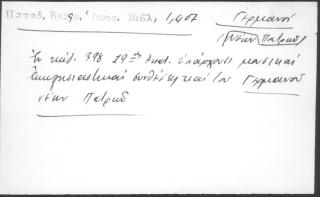 Παπαδ. Κεραμ. Ιεροσ. Βιβλ. 1,407
Γερμανοῦ
Νέων Πατρῶν
Ἐν κώδ. 398 19ης ἑκατ. ὑπάρχουσι μουσικαὶ
ἐκκλησιαστικαὶ συνθέσεις καὶ τοῦ Γερμανοῦ
νέων Πατρῶν